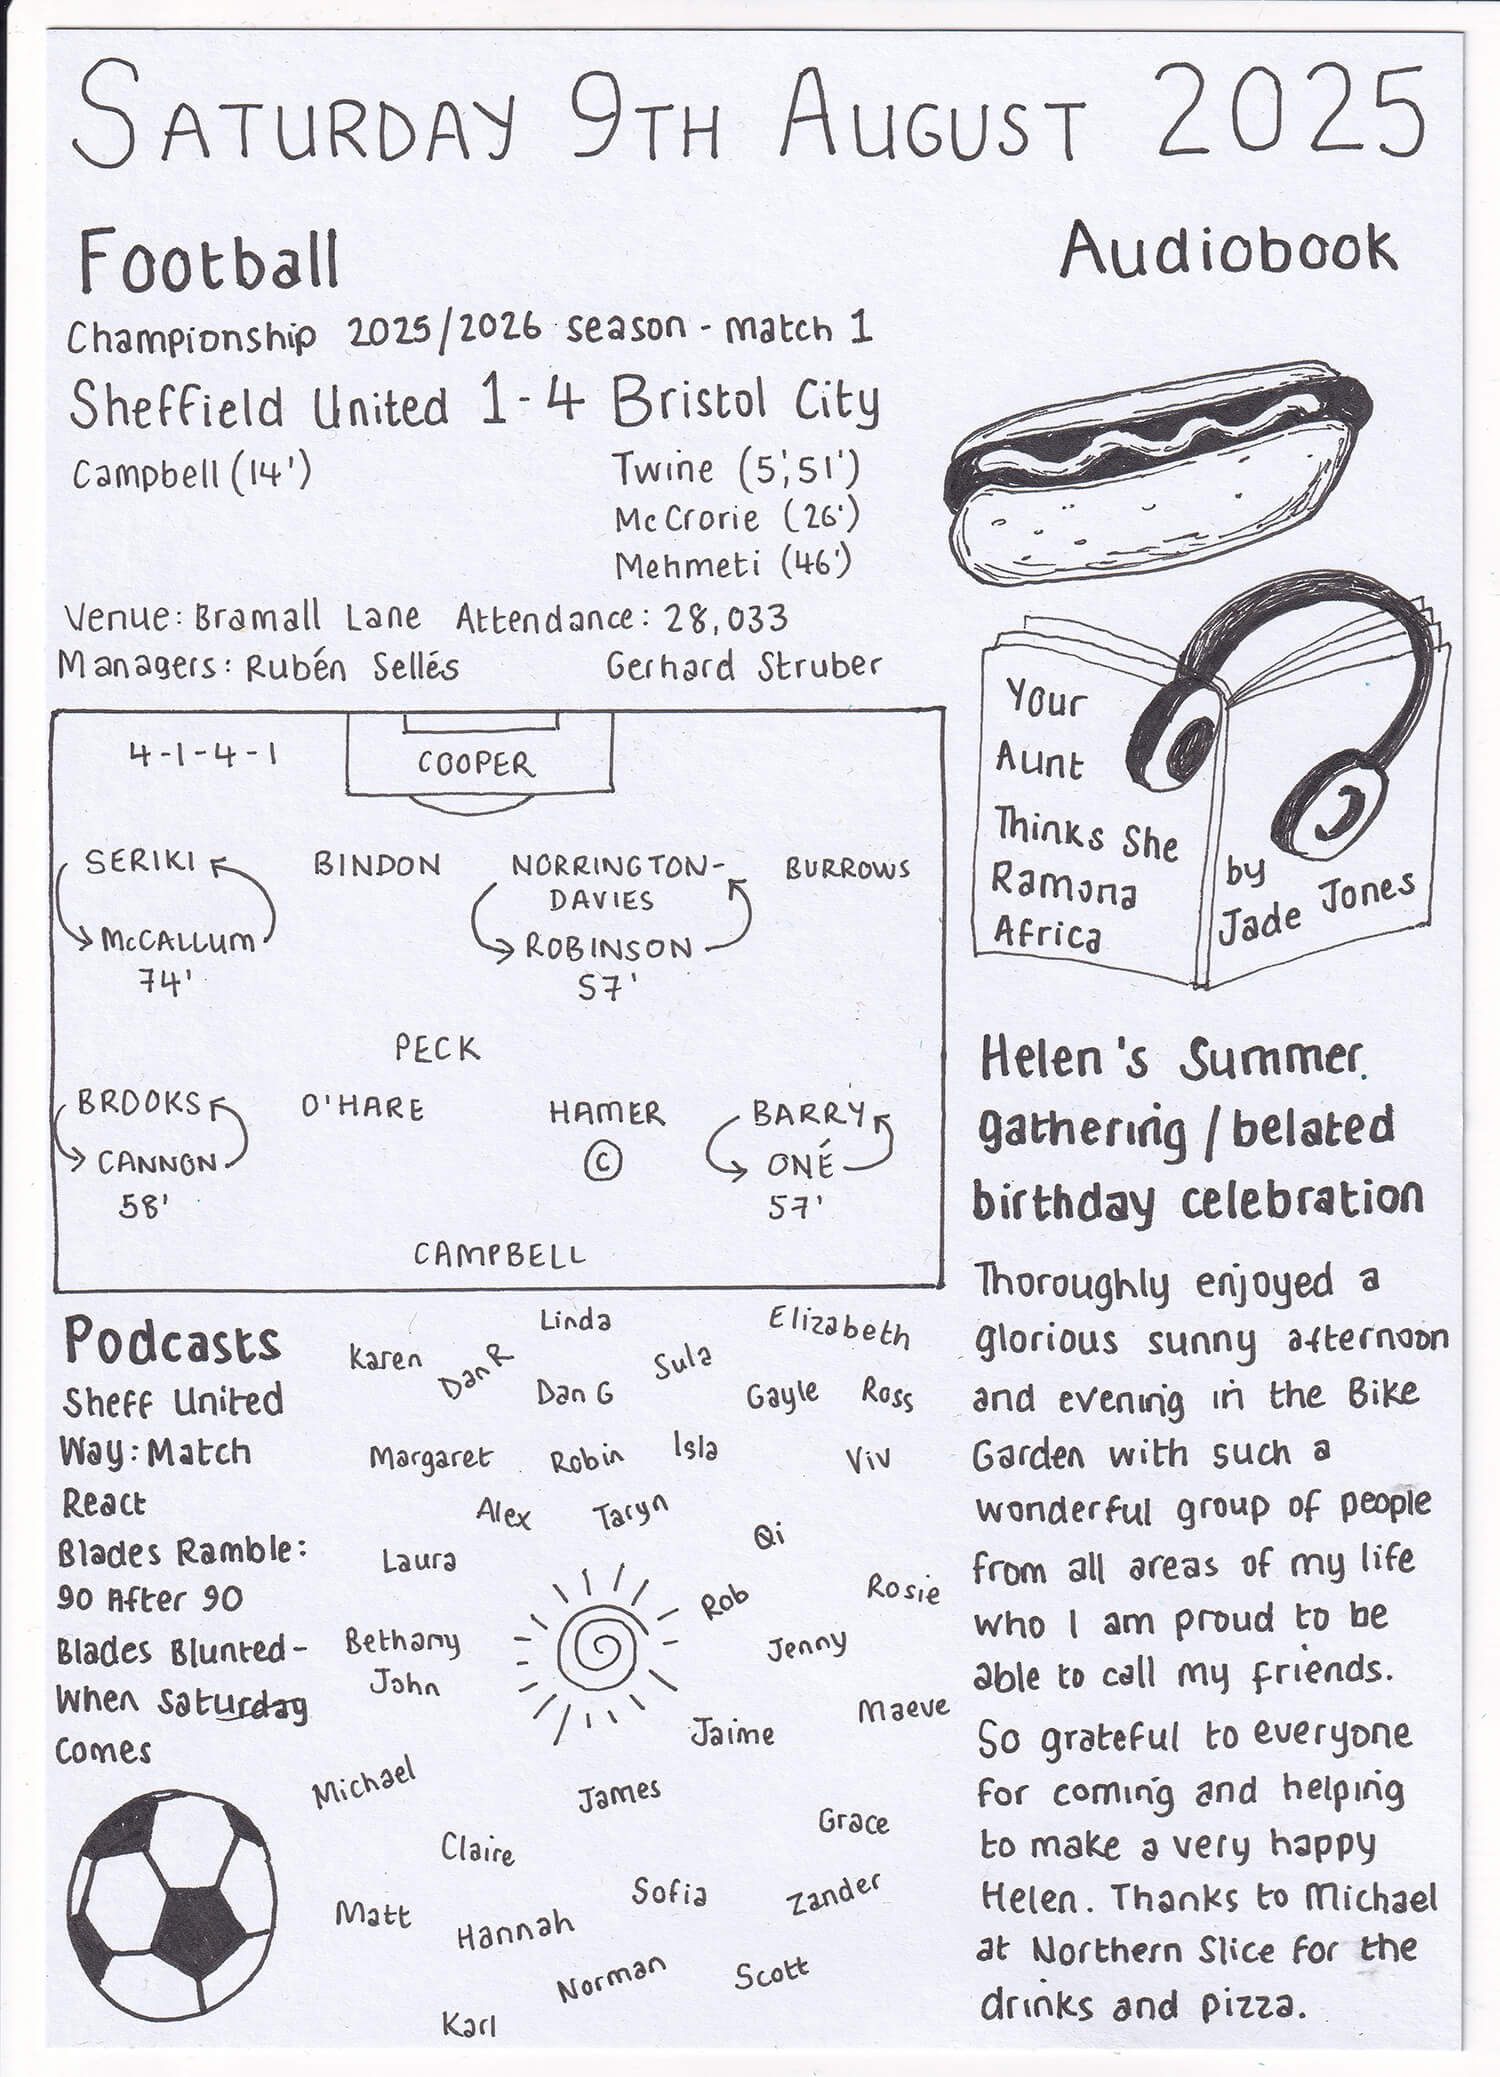 SATURDAY 9TH AUGUST 2025
Football
Championship 2025/2026 season - match 1
Sheffield United 1-4 Bristol City
Campbell (14') Twine (5', 51')
McCrorie (26')
Mehmeti (46')
Venue: Bramall Lane Attendance: 28,033
Managers: Rubén Sellés Gerhard Struber
4-1-4-1
COOPER
SERIKI BINDON NORRINGTON-
DAVIES BURROWS
McCALLUM ROBINSON
74' 57'
PECK
BROOKS O'HARE HAMER BARRY
CANNON © ONÉ
58' 57'
CAMPBELL
Audiobook
Your
Aunt
Thinks She
Ramona
Africa
by
Jade Jones
Podcasts
Sheff United
Way: Match
React
Blades Ramble:
90 After 90
Blades Blunted-
When Saturday
Comes
Linda
Elizabeth
Karen
Dan R
Sula
Dan G
Gayle
Ross
Margaret
Robin
Isla
Viv
Alex
Taryn
Qi
Laura
Rob
Rosie
Bethany
Jenny
John
Maeve
Jaime
Michael
James
Grace
Claire
Sofia
Zander
Matt
Hannah
Norman
Scott
Karl
Helen's Summer
gathering/belated
birthday celebration
Thoroughly enjoyed a
glorious sunny afternoon
and evening in the Bike
Garden with such a
wonderful group of people
from all areas of my life
who I am proud to be
able to call my friends.
So grateful to everyone
for coming and helping
to make a very happy
Helen. Thanks to Michael
at Northern Slice for the
drinks and pizza.